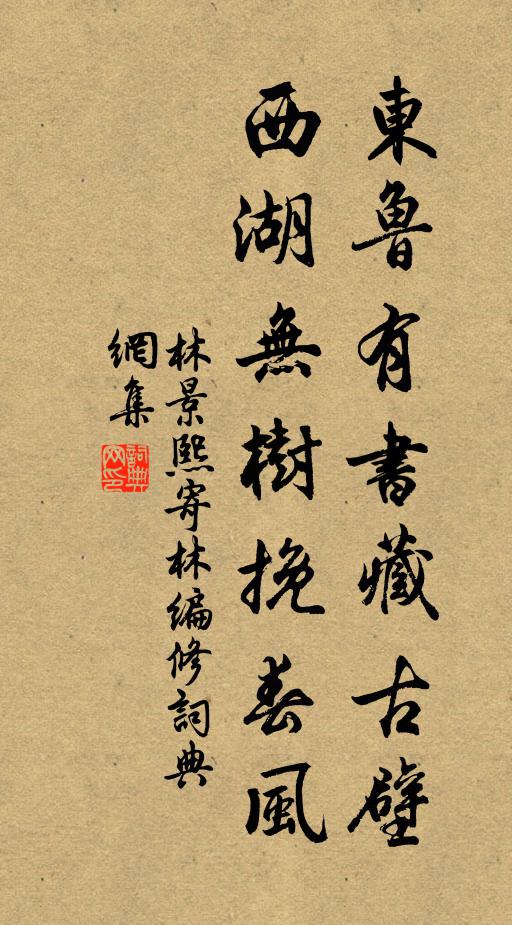 東魯有書藏古壁
西湖無樹挽春風
林景熙寄林編修詞典
網集
詞典網印